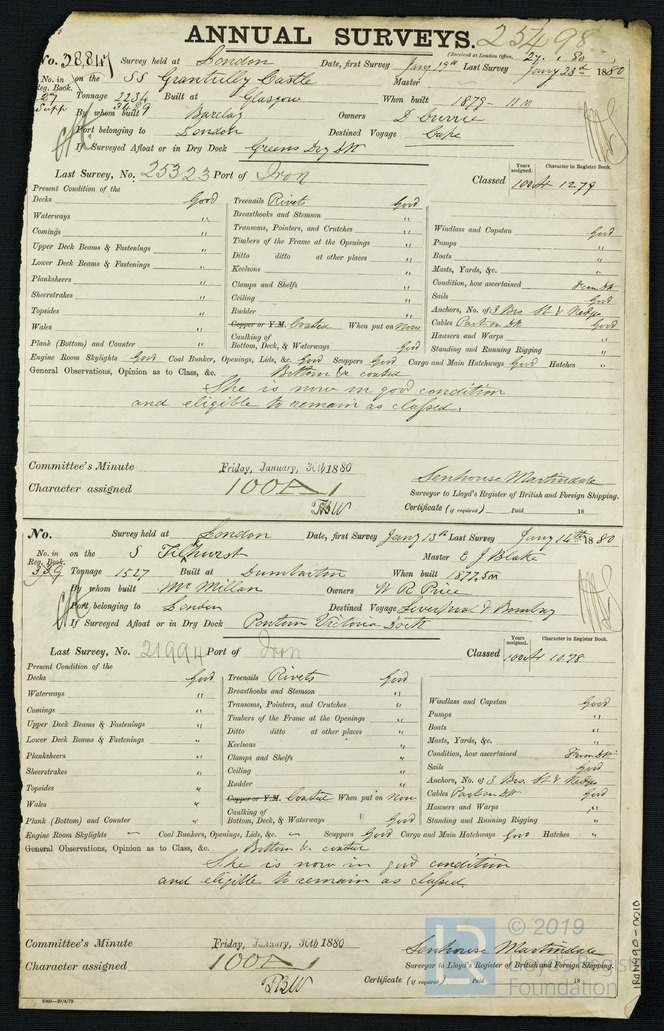 ANNUAL SURVEYS. 25498
(Received at London Office, 27. 1. 80)
No. 28847 Survey held at London Date, first Survey Jany 19th Last Survey Jany 23rd 1880
No. in Reg. Book. on the SS Grantully Castle Master
27 Supp Tonnage 2234 3489 Built at Glasgow When built 1879 - 11 m
By whom built Barclay Owners D Currie
Port belonging to London Destined Voyage Cape
If Surveyed Afloat or in Dry Dock Greens Dry Dk
Last Survey, No. 25323 Port of Iron Classed Years assigned. 100A1 Character in Register Book. 12.79
Present Condition of the
Decks Good Treenails Rivets Good
Waterways " Breasthooks and Stemson " Windlass and Capstan Good
Comings " Transoms, Pointers, and Crutches " Pumps "
Upper Deck Beams & Fastenings " Timbers of the Frame at the Openings " Boats "
Lower Deck Beams & Fastenings " Ditto ditto at other places " Masts, Yards, &c. "
Planksheers " Keelsons " Condition, how ascertained From Dk
Sheerstrakes " Clamps and Shelfs " Sails Good
Topsides " Ceiling " Anchors, No. of 3 Brs St & Kedge
Wales " Rudder " Cables Part on Dk Good
Copper or Y.M. Coated When put on Now Hawsers and Warps "
Plank (Bottom) and Counter " Caulking of Bottom, Deck, & Waterways Good Standing and Running Rigging "
Engine Room Skylights Good Coal Bunker, Openings, Lids, &c. Good Scuppers Good Cargo and Main Hatchways Good Hatches "
General Observations, Opinion as to Class, &c. Bottom & coated
She is now in good condition
and eligible to remain as classed.
Committee's Minute Friday, January, 30th 1880
Character assigned 100A1
Senhouse Martindale
Surveyor to Lloyd's Register of British and Foreign Shipping.
Certificate (if required) Paid 18
No. Survey held at London Date, first Survey Jany 13th Last Survey Jany 14th 1880
No. in Reg. Book. on the S Tilkhurst Master E J Blake
339 Tonnage 1527 Built at Dumbarton When built 1877.5m
By whom built McMillan Owners W R Price
Port belonging to London Destined Voyage Liverpool & Bombay
If Surveyed Afloat or in Dry Dock Pontoon Victoria Dock
Last Survey, No. 21994 Port of Iron Classed Years assigned. 100A1 Character in Register Book. 10.78
Present Condition of the
Decks Good Treenails Rivets Good
Waterways " Breasthooks and Stemson " Windlass and Capstan Good
Comings " Transoms, Pointers, and Crutches " Pumps "
Upper Deck Beams & Fastenings " Timbers of the Frame at the Openings " Boats "
Lower Deck Beams & Fastenings " Ditto ditto at other places " Masts, Yards, &c. "
Planksheers " Keelsons " Condition, how ascertained From Dk
Sheerstrakes " Clamps and Shelfs " Sails Good
Topsides " Ceiling " Anchors, No. of 3 Brs St & Kedge
Wales " Rudder " Cables Part on Dk Good
Copper or Y.M. Coated When put on Now Hawsers and Warps "
Plank (Bottom) and Counter " Caulking of Bottom, Deck, & Waterways Good Standing and Running Rigging "
Engine Room Skylights " Coal Bunkers, Openings, Lids, &c. " Scuppers Good Cargo and Main Hatchways Good Hatches "
General Observations, Opinion as to Class, &c. Bottom &. coated
She is now in good condition
and eligible to remain as classed.
Committee's Minute Friday, January, 30th 1880
Character assigned 100A1
Senhouse Martindale
Surveyor to Lloyd's Register of British and Foreign Shipping.
Certificate (if required) Paid 18
IRON490-0010
LR © 2019
Lloyd's Register
Foundation